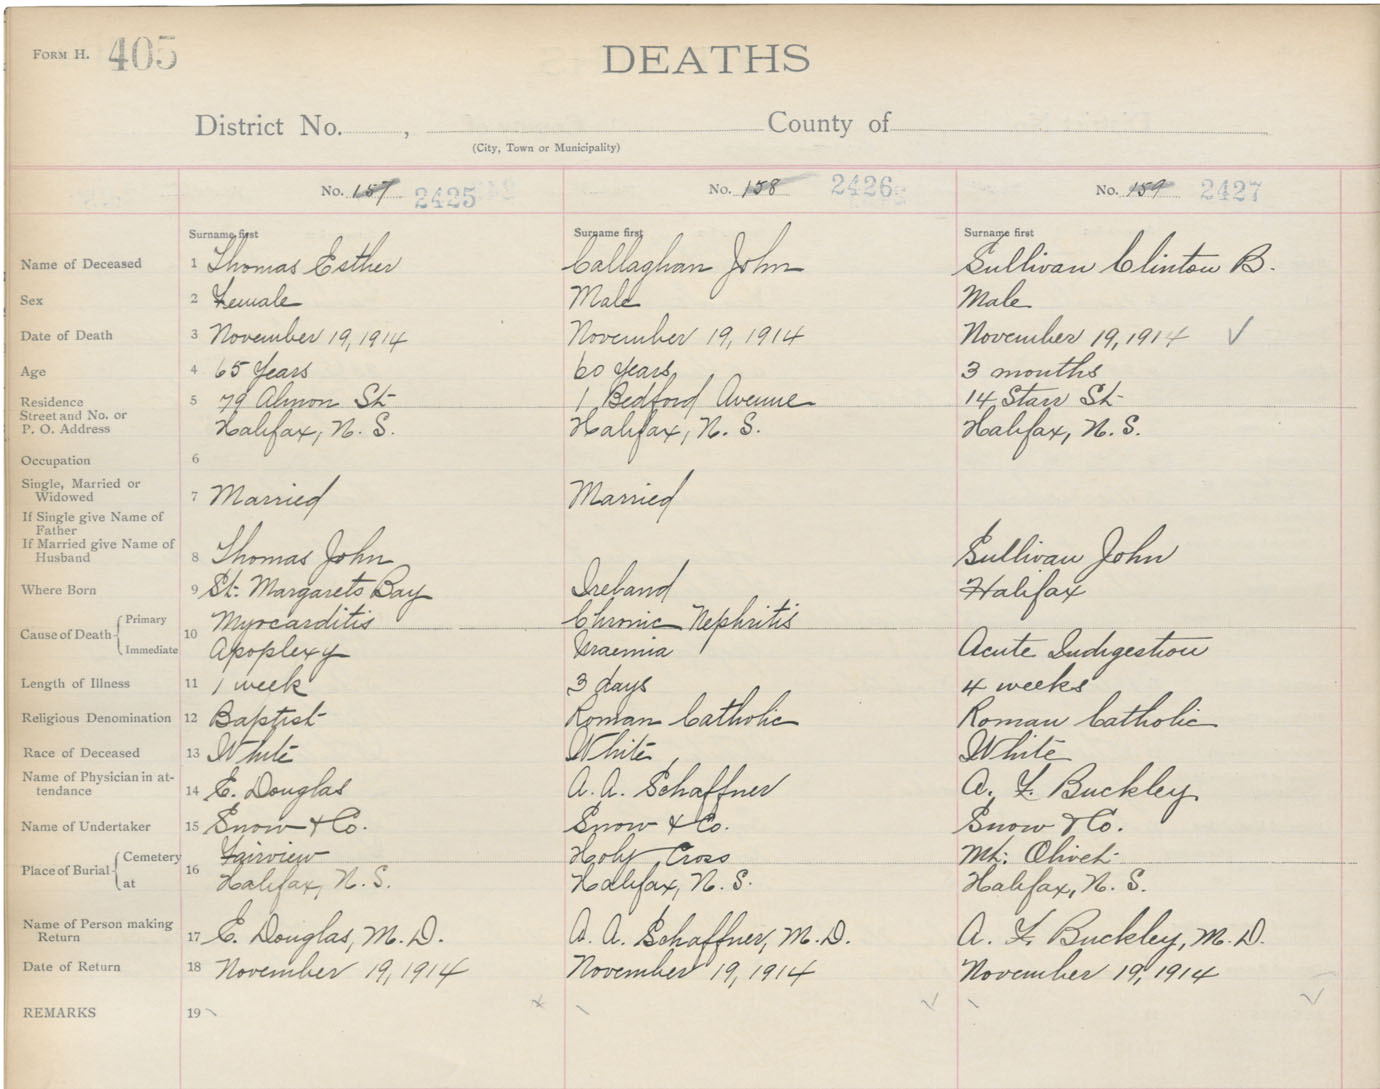 FORM H. 405
DEATHS
District No. , County of
(City, Town or Municipality)
No. 157 2425 No. 158 2426 No. 159 2427
Surname first Surname first Surname first
Name of Deceased 1 Thomas Esther Callaghan John Sullivan Clinton B.
Sex 2 Female Male Male
Date of Death 3 November 19, 1914 November 19, 1914 November 19, 1914 ✓
Age 4 65 Years 60 years 3 months
Residence 5 79 Almon St. 1 Bedford Avenue 14 Starr St.
Street and No. or
P. O. Address Halifax, N. S. Halifax, N. S. Halifax, N. S.
Occupation 6
Single, Married or
Widowed 7 Married Married
If Single give Name of
Father
If Married give Name of
Husband 8 Thomas John Sullivan John
Where Born 9 St. Margarets Bay Ireland Halifax
Cause of Death Primary 10 Myocarditis Chronic Nephritis
Immediate Apoplexy Uraemia Acute Indigestion
Length of Illness 11 1 week 3 days 4 weeks
Religious Denomination 12 Baptist Roman Catholic Roman Catholic
Race of Deceased 13 White White White
Name of Physician in at-
tendance 14 E. Douglas A. A. Schaffner A. F. Buckley
Name of Undertaker 15 Snow & Co. Snow & Co. Snow & Co.
Place of Burial Cemetery 16 Fairview Holy Cross Mt. Olivet
at Halifax, N. S. Halifax, N. S. Halifax, N. S.
Name of Person making
Return 17 E. Douglas, M. D. A. A. Schaffner, M. D. A. F. Buckley, M. D.
Date of Return 18 November 19, 1914 November 19, 1914 November 19, 1914
REMARKS 19